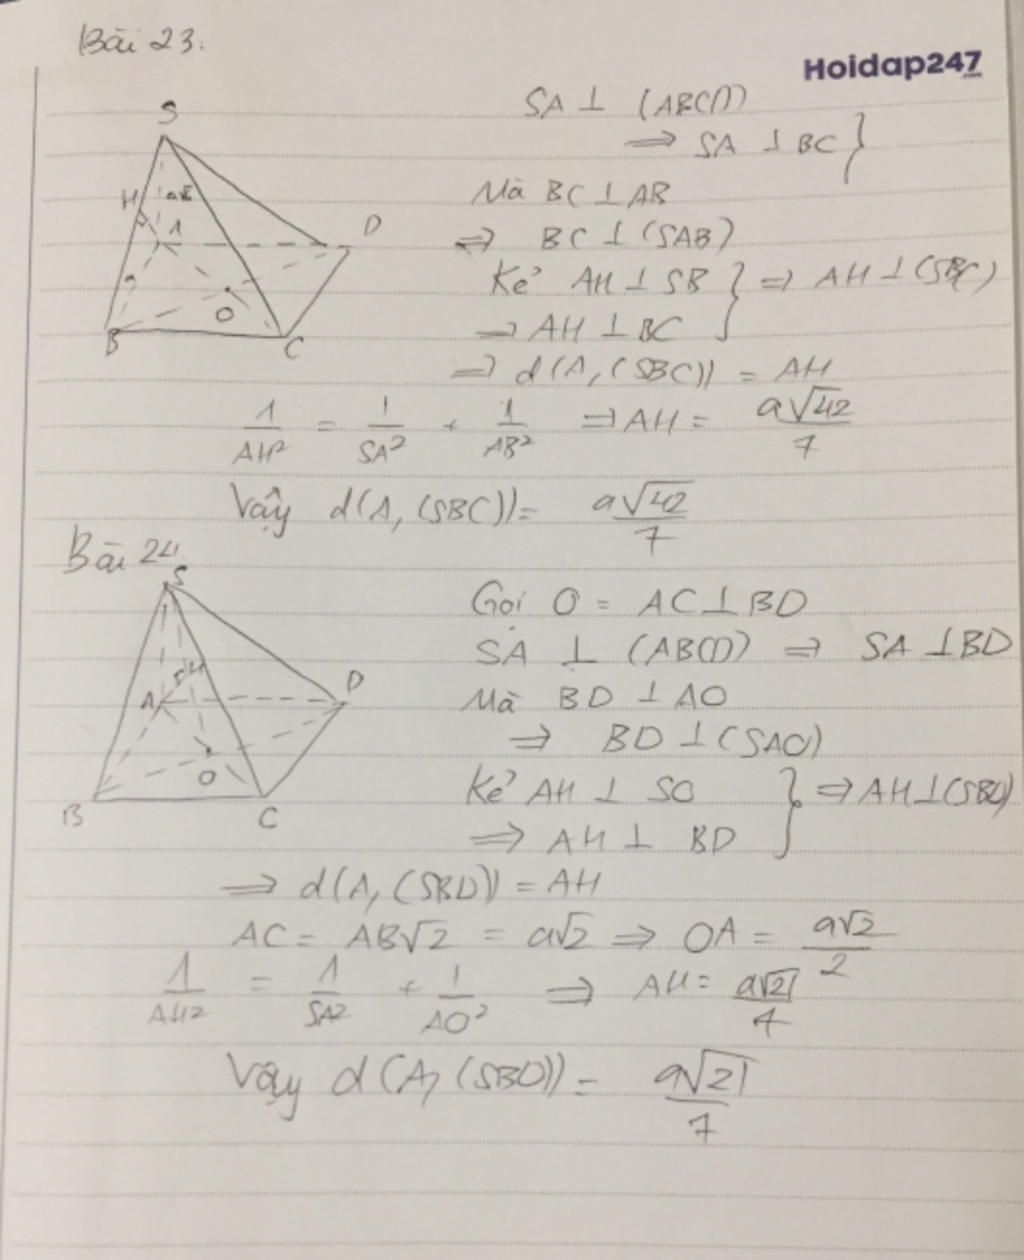 Bài 23.
Hoidap247.com
S
SA ⊥ (ABCD)
⇒ SA ⊥ BC }
H a√
A
D
Mà BC ⊥ AB
⇒ BC ⊥ (SAB)
Kẻ AH ⊥ SB } ⇒ AH ⊥ (SBC)
O
B
C
⇒ AH ⊥ BC
⇒ d(A, (SBC)) = AH
1/AH² = 1/SA² + 1/AB² ⇒ AH = a√42/7
Vậy d(A, (SBC)) = a√42/7
Bài 24.
S
Gọi O = AC ⊥ BD
SA ⊥ (ABCD) ⇒ SA ⊥ BD
H
A
D
Mà BD ⊥ AO
⇒ BD ⊥ (SAO)
O
Kẻ AH ⊥ SO } ⇒ AH ⊥ (SBD)
B
C
⇒ AH ⊥ BD
⇒ d(A, (SBD)) = AH
AC = AB√2 = a√2 ⇒ OA = a√2/2
1/AH² = 1/SA² + 1/AO² ⇒ AH = a√21/7
Vậy d(A, (SBD)) = a√21/7